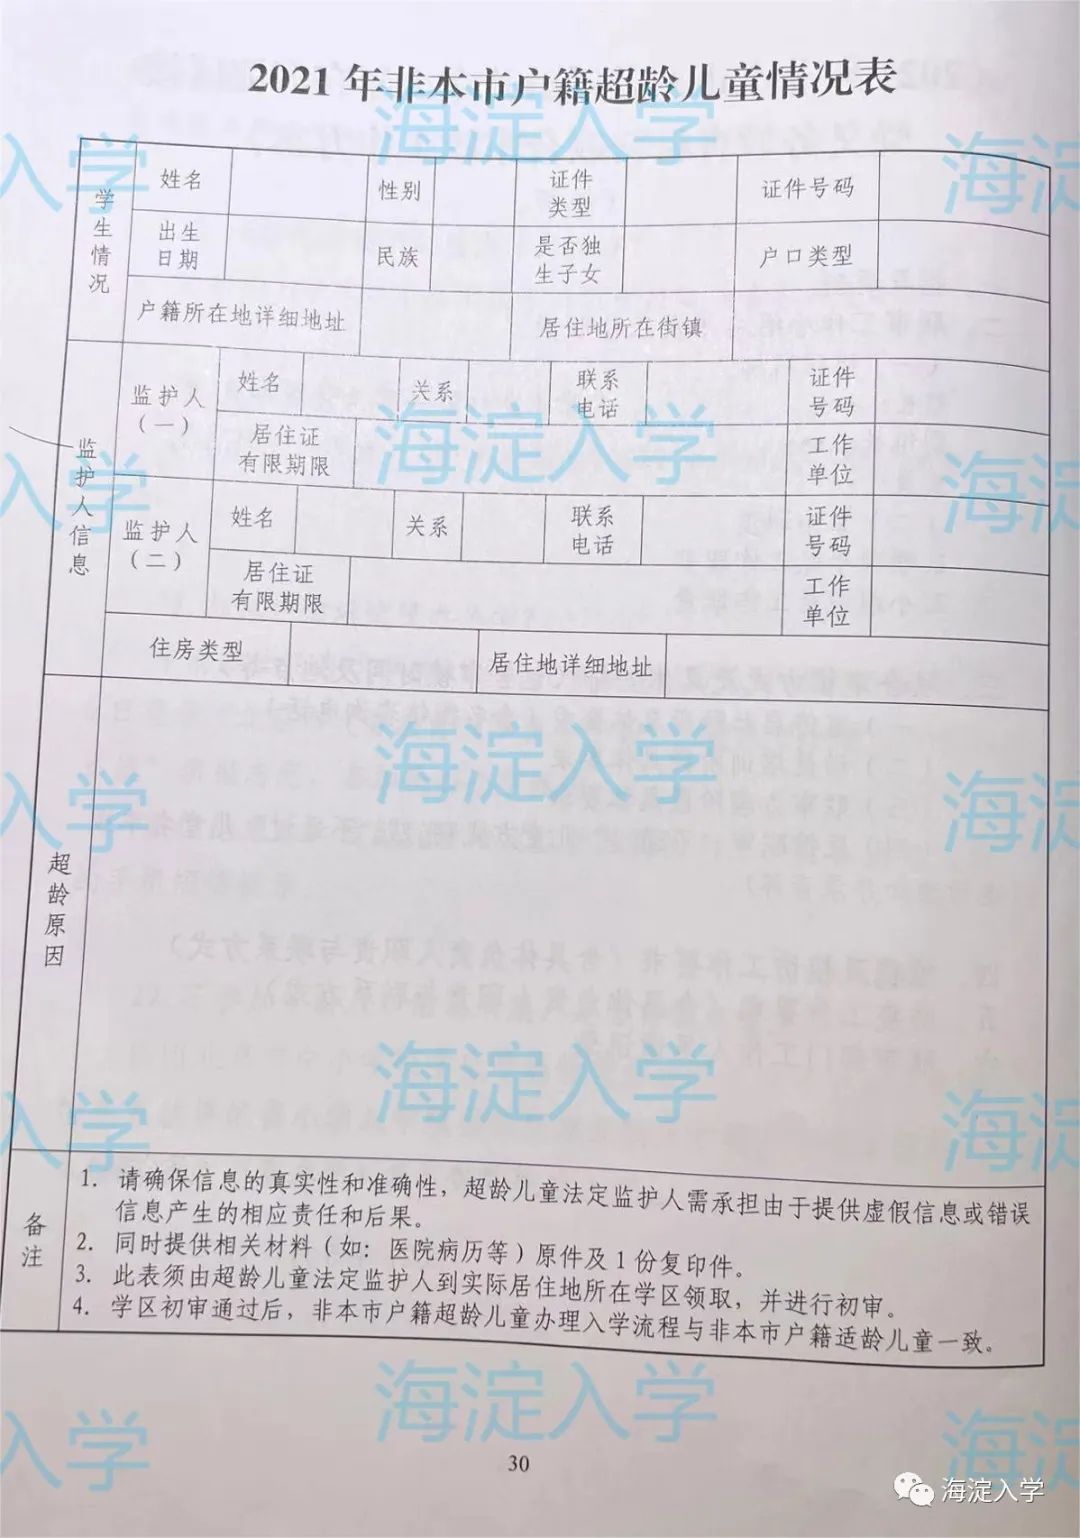 2021年非本市户籍超龄儿童情况表
学生情况
姓名
性别
证件
类型
证件号码
出生
日期
民族
是否独
生子女
户口类型
户籍所在地详细地址
居住地所在街镇
监护人信息
监护人
(一)
姓名
关系
联系
电话
证件
号码
居住证
有限期限
工作
单位
监护人
(二)
姓名
关系
联系
电话
证件
号码
居住证
有限期限
工作
单位
住房类型
居住地详细地址
超龄原因
备注
1. 请确保信息的真实性和准确性，超龄儿童法定监护人需承担由于提供虚假信息或错误
信息产生的相应责任和后果。
2. 同时提供相关材料（如：医院病历等）原件及1份复印件。
3. 此表须由超龄儿童法定监护人到实际居住地所在学区领取，并进行初审。
4. 学区初审通过后，非本市户籍超龄儿童办理入学流程与非本市户籍适龄儿童一致。
30
海淀入学
海淀入学
海淀入学
海淀入学
海淀入学
海淀入学